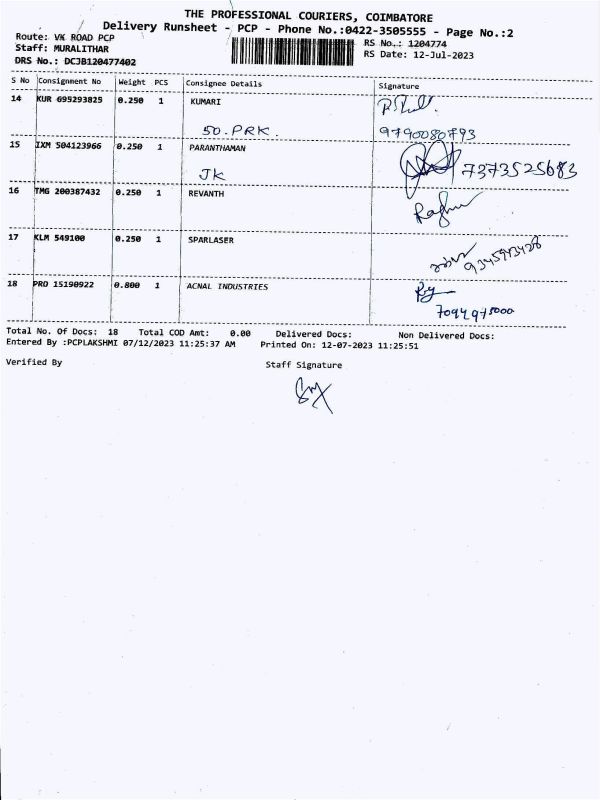 THE PROFESSIONAL COURIERS, COIMBATORE
Delivery Runsheet - PCP - Phone No.:0422-3505555 - Page No.:2
Route: VK ROAD PCP
RS No.: 1204774
Staff: MURALITHAR
RS Date: 12-Jul-2023
DRS No.: DCJB120477402
S No Consignment No Weight PCS Consignee Details Signature
14 KUR 695293825 0.250 1 KUMARI
50. PRK 9790080793
15 IXM 504123966 0.250 1 PARANTHAMAN
JK 7373525683
16 TMG 200387432 0.250 1 REVANTH
17 KLM 549100 0.250 1 SPARLASER
9345943428
18 PRO 15190922 0.800 1 ACNAL INDUSTRIES
7094975000
Total No. Of Docs: 18 Total COD Amt: 0.00 Delivered Docs: Non Delivered Docs:
Entered By :PCPLAKSHMI 07/12/2023 11:25:37 AM Printed On: 12-07-2023 11:25:51
Verified By Staff Signature